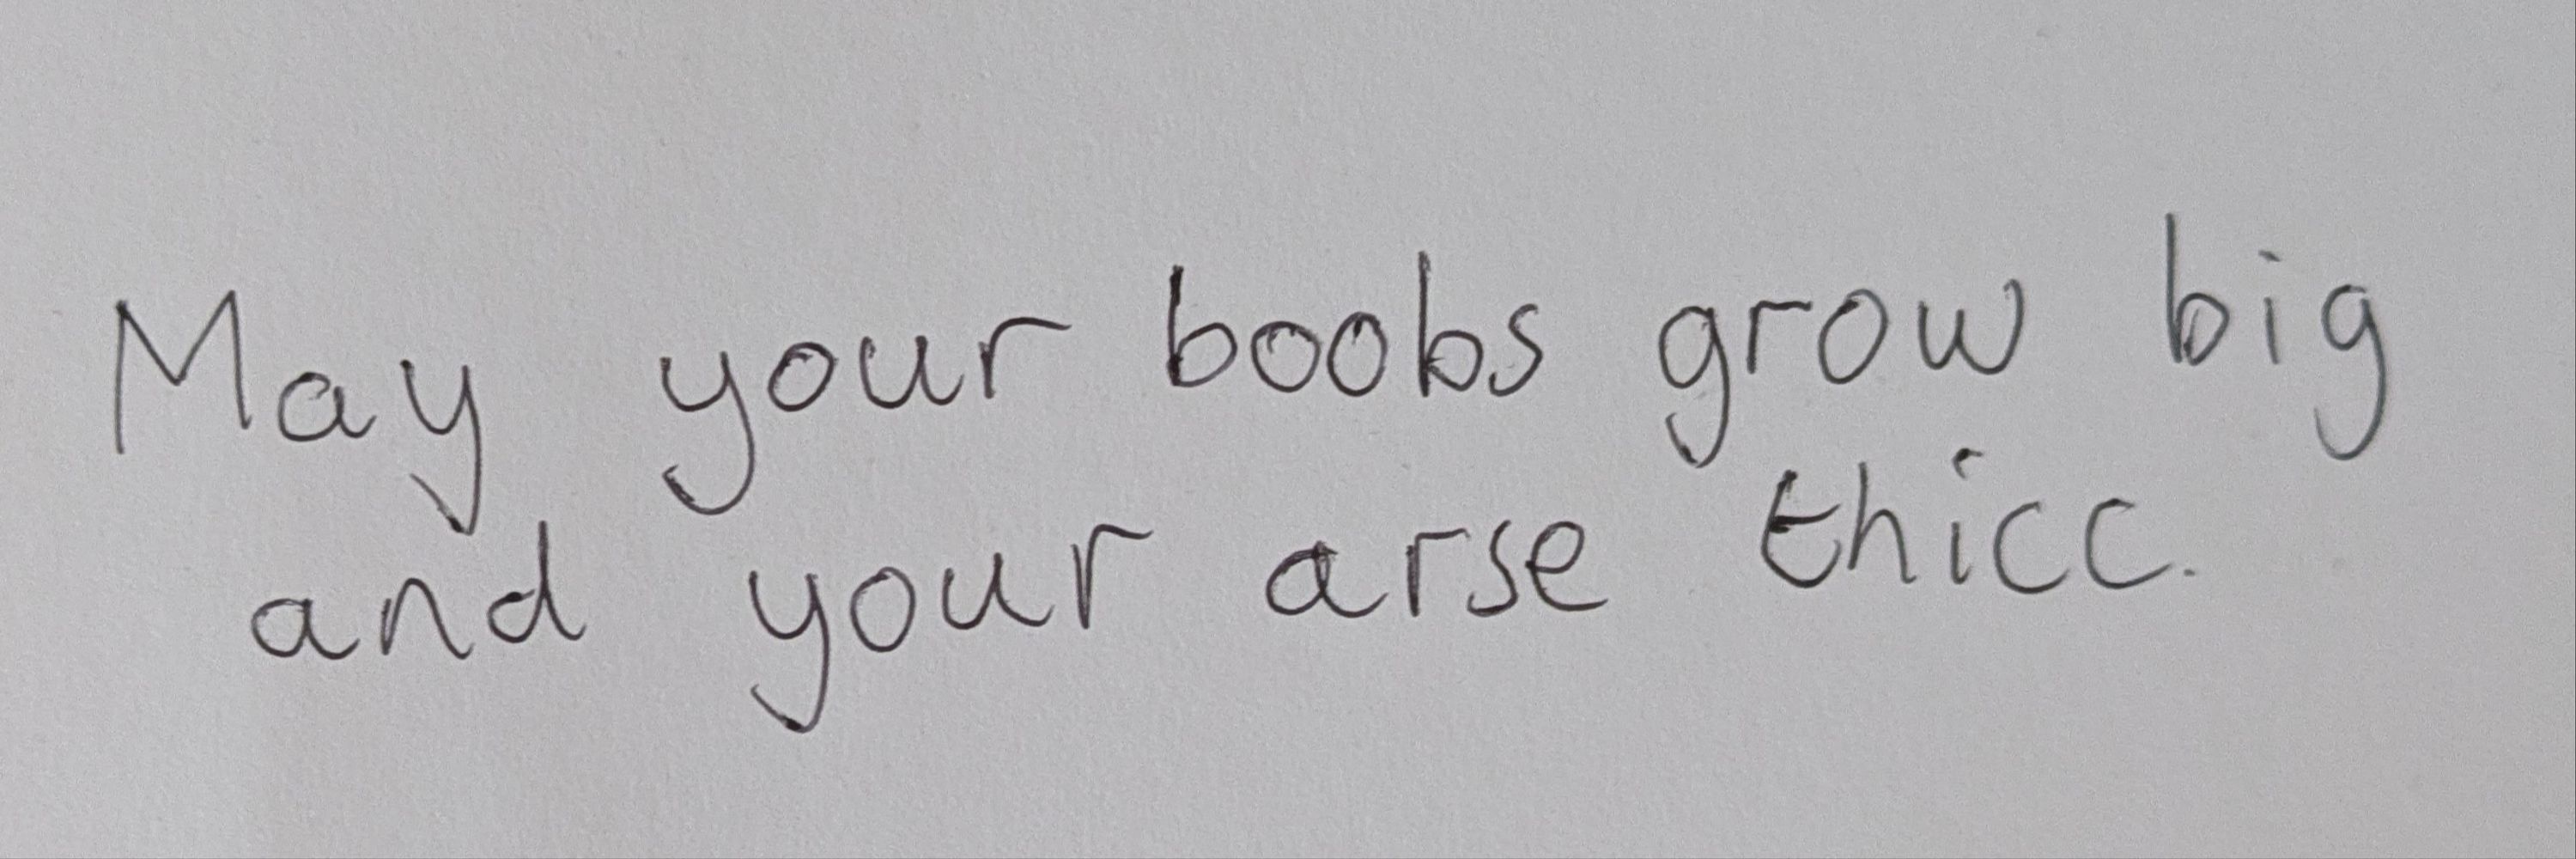 May your boobs grow big
and your arse thicc.